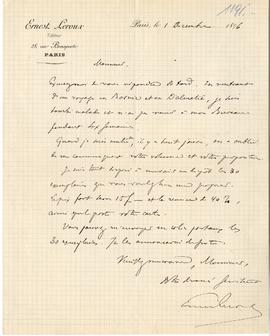 1191.
Ernest Leroux
Éditeur
28, rue Bonaparte
PARIS
Paris, le 1 Décembre 1896
Monsieur,
Excusez-moi de vous répondre si tard. En rentrant
d'un voyage en Bosnie et en Dalmatie, je suis
tombé malade et n'ai pu venir à mon Bureau
pendant six semaines.
Quand je suis rentré, il y a huit jours, on a oublié
de me communiquer votre volume et votre proposition.
Je suis tout disposé à mettre en dépôt les 30
exemplaires que vous voulez bien me proposer.
Prix fort 15 f - et la remise de 40 %,
ainsi que le porte votre carte.
Vous pouvez m'envoyer en colis postaux les
30 exemplaires. Je les annoncerai de suite.
Veuillez recevoir, Monsieur,
Votre dévoué Serviteur